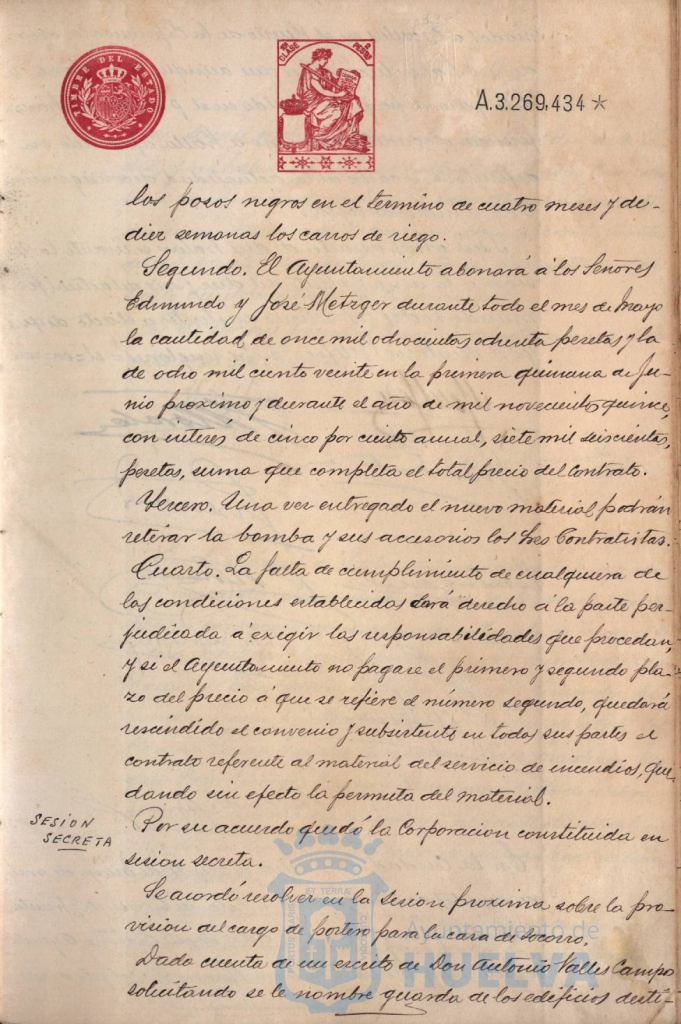 TIMBRE DEL ESTADO
CLASE
PESETAS
A.3.269,434*
los posos negros en el termino de cuatro meses y de-
diez semanas los carros de riego.
Segundo. El Ayuntamiento abonará á los Señores
Edmundo y José Metzger durante todo el mes de Mayo
la cantidad de once mil ochocientas ochenta pesetas y la
de ocho mil ciento veinte en la primera quincena de Ju-
nio proximo y durante el año de mil novecientos quince,
con interés de cinco por ciento anual, siete mil seiscientas
pesetas, suma que completa el total precio del Contrato.
Tercero. Una vez entregado el nuevo material podrán
retirar la bomba y sus accesorios los Sres Contratistas.
Cuarto. La falta de cumplimiento de cualquiera de
las condiciones establecidas dará derecho á la parte per-
judicada á exigir las responsabilidades que procedan,
y si el Ayuntamiento no pagare el primero y segundo pla-
zo del precio á que se refiere el número segundo, quedará
rescindido el convenio y subsistente en todas sus partes el
contrato referente al material del servicio de incendios, que-
dando sin efecto la permuta del material.
SESION
SECRETA
Por su acuerdo quedó la Corporacion constituida en
sesion secreta.
Se acordó resolver en la sesion proxima sobre la pro-
vision del cargo de portero para la casa de socorro.
Dada cuenta de un escrito de Don Antonio Valles Campo
solicitando se le nombre guarda de los edificios desti-
Ayuntamiento de
HUELVA